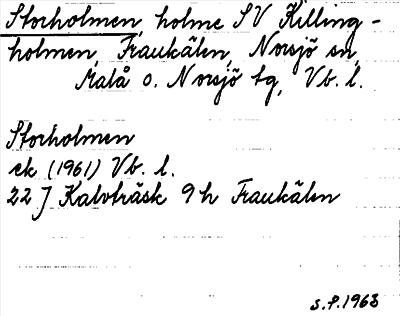 Storholmen, holme SV Killing-
holmen, Fraukälen, Norsjö sn,
Malå o. Norsjö tg, Vb. l.
Storholmen
ek (1961) Vb. l.
22 J Kalvträsk 9 h Fraukälen
S.P. 1963